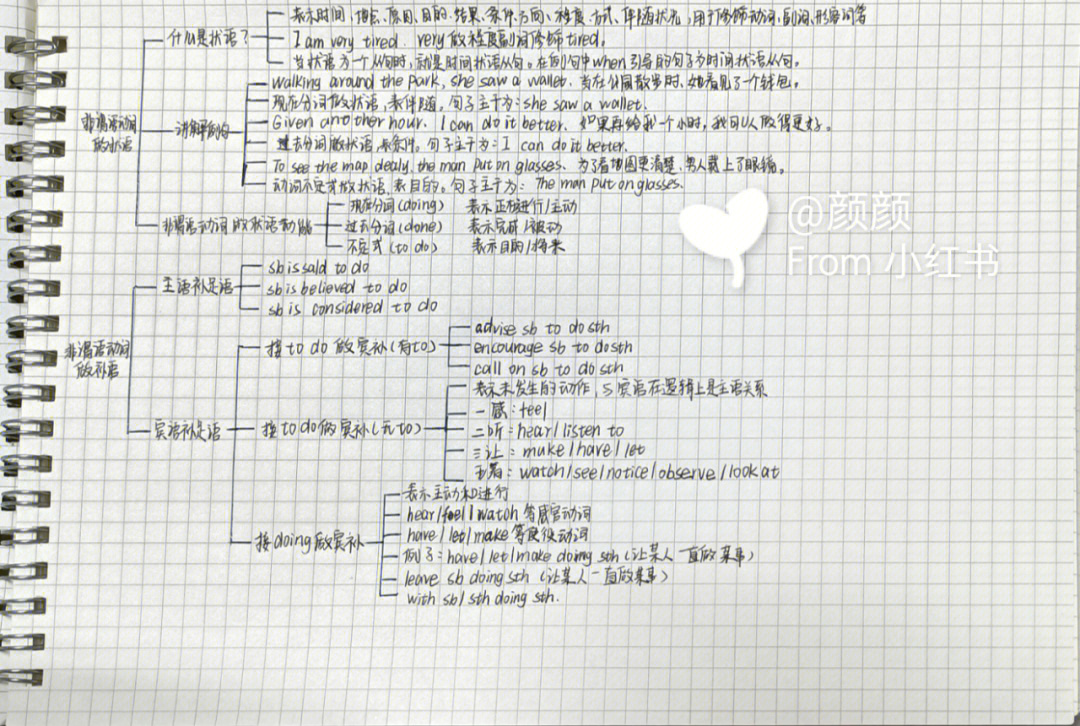 非谓语动词
的状语
什么是状语?
表示时间、地点、原因、目的、结果、条件、方向、程度、方式、伴随状况,用于修饰动词、副词、形容词等
I am very tired. very放程度副词修饰tired.
当状语为一个从句时,就是时间状语从句。在例句中when引导的句子为时间状语从句。
讲解例句
walking around the park, she saw a wallet. 当在公园散步时,她看见了一个钱包。
现在分词做状语,表伴随,句子主干为:she saw a wallet.
Given another hour. I can do it better. 如果再给我一个小时,我可以做得更好。
过去分词做状语,表条件。句子主干为:I can do it better.
To see the map clealy, the man put on glasses. 为了看地图更清楚,男人戴上了眼镜。
动词不定式做状语,表目的。句子主干为:The man put on glasses.
非谓语动词做状语功能
现在分词(doing) 表示正在进行/主动
过去分词(done) 表示完成/被动
不定式(to do) 表示目的/将来
@颜颜
From 小红书
非谓语动词
做补语
主语补足语
sb is said to do
sb is believed to do
sb is considered to do
宾语补足语
接to do做宾补(有to)
advise sb to do sth
encourage sb to do sth
call on sb to do sth
接to do做宾补(无to)
表示未发生的动作,与宾语在逻辑上是主语关系
一感:feel
二听:hear/listen to
三让:make/have/let
五看:watch/see/notice/observe/look at
接doing做宾补
表示主动和进行
hear/feel/watch等感官动词
have/let/make等使役动词
例子:have/let/make doing sth(让某人一直做某事)
leave sb doing sth(让某人一直做某事)
with sb/sth doing sth.